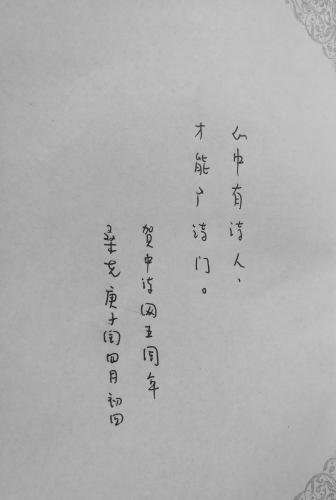 心中有诗人，
才能广诗门。
贺中诗网五周年
桑克庚子闰四月初四